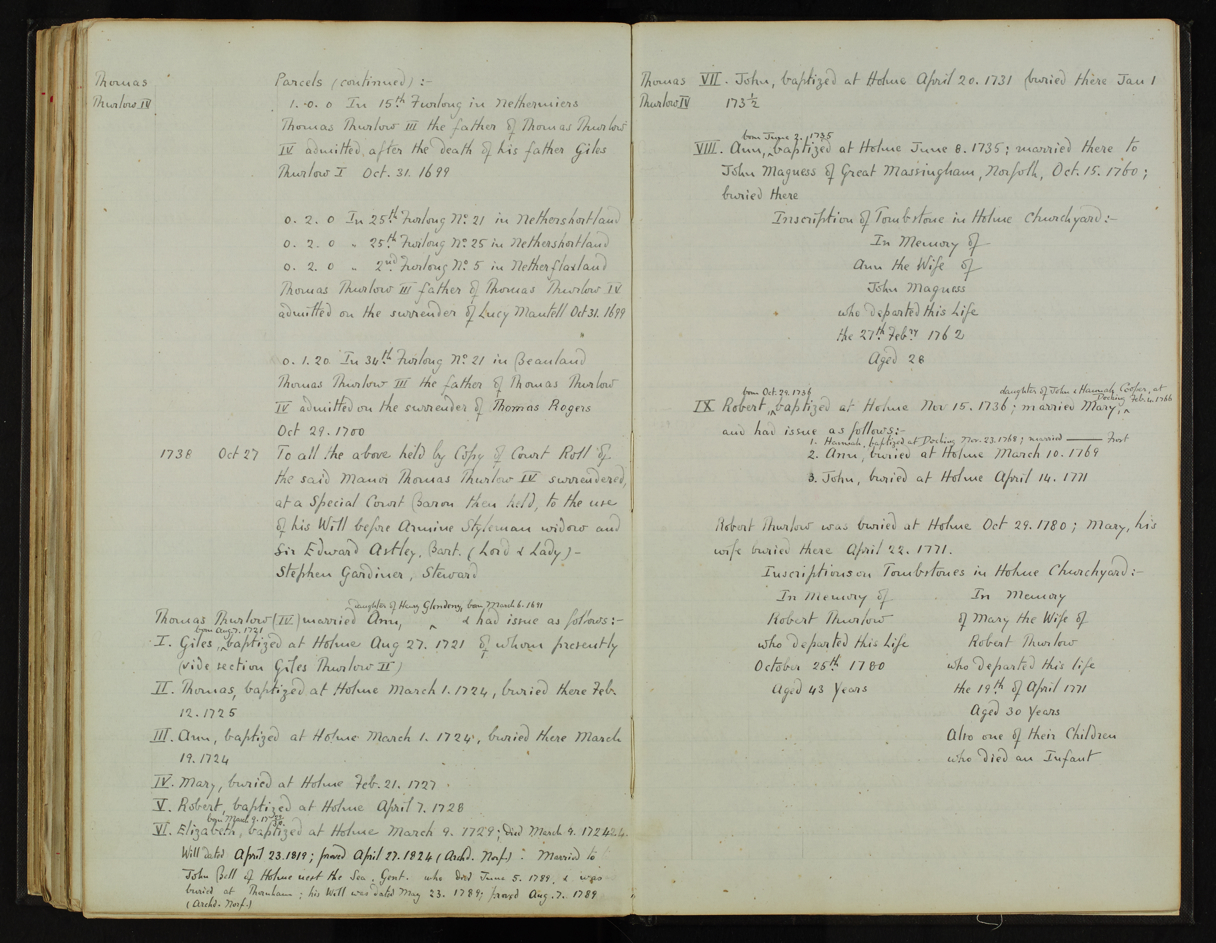 Thomas
Thurlow IV
Parcels (continued) :-
1. 0. 0 In 15th Furlong in Nethermiers
Thomas Thurlow III the father of Thomas Thurlow
IV admitted, after the death of his father Giles
Thurlow I Oct. 31. 1699
0. 2. 0 In 25th Furlong No. 21 in Nethershortland
0. 2. 0 " 25th Furlong No. 25 in Nethershortland
0. 2. 0 " 2nd Furlong No. 5 in Netherflaxland
Thomas Thurlow III father of Thomas Thurlow IV
admitted on the surrender of Lucy Mantell Oct 31. 1699
0. 1. 20 In 34th Furlong No. 21 in Beauland
Thomas Thurlow III the father of Thomas Thurlow
IV admitted on the surrender of Thomas Rogers
Oct 29. 1700
1738 Oct 27 To all the above held by Copy of Court Roll of
the said Manor Thomas Thurlow IV surrendered,
at a Special Court Baron then held, to the use
of his Will before Armine Styleman widow and
Sir Edward Astley, Bart. (Lord & Lady) -
Stephen Gardiner, Steward
daughter of Henry Glendeny, born March 6. 1691
Thomas Thurlow (IV) married Ann, & had issue as follows :-
born Aug 7. 1721
I. Giles, baptized at Holme Aug 27. 1721 of whom presently
(vide section Giles Thurlow II)
II. Thomas, baptized at Holme March 1. 1724, buried there Feb.
12. 1725
III. Ann, baptized at Holme March 1. 1724, buried there March
19. 1724
IV. Mary, buried at Holme Feb. 21. 1727
V. Robert, baptized at Holme April 7. 1728
born March 9.
VI. Elizabeth, baptized at Holme March 9. 1729; died March 4.
Will dated April 23. 1819; proved April 27. 1824 (Archd. Norf.) : Married to
John Bell of Holme next the Sea. Gent. who died June 5. 1789, & was
buried at Thornham ; his Will was dated May 23. 1789; proved Aug. 7. 1789
(Archd. Norf.)
Thomas
Thurlow IV
VII. John, baptized at Holme April 20. 1731 (buried there Jan 1
173½
born June 2. 1735
VIII. Ann, baptized at Holme June 8. 1735; married there to
John Magness of Great Massingham, Norfolk, Oct. 15. 1760;
buried there
Inscription of Tombstone in Holme Churchyard :-
In Memory of
Ann the Wife of
John Magness
who departed this Life
the 27th Febry 1762
Aged 28
born Oct. 29. 1736
daughter of John & Hannah Cooper, at
Docking Feb. 1766
IX Robert, baptized at Holme Nov 15. 1736; married Mary,
and had issue as follows:-
1. Hannah, baptized at Docking Nov. 23. 1768; married —— Frost
2. Ann, buried at Holme March 10. 1769
3. John, buried at Holme April 14. 1771
Robert Thurlow was buried at Holme Oct 29. 1780; Mary, his
wife buried there April 22. 1771.
Inscriptions on Tombstones in Holme Churchyard :-
In Memory of
Robert Thurlow
who departed this Life
October 25th 1780
Aged 43 Years
In Memory
of Mary the Wife of
Robert Thurlow
who departed this life
the 19th of April 1771
Aged 30 Years
Also one of their Children
who died an Infant